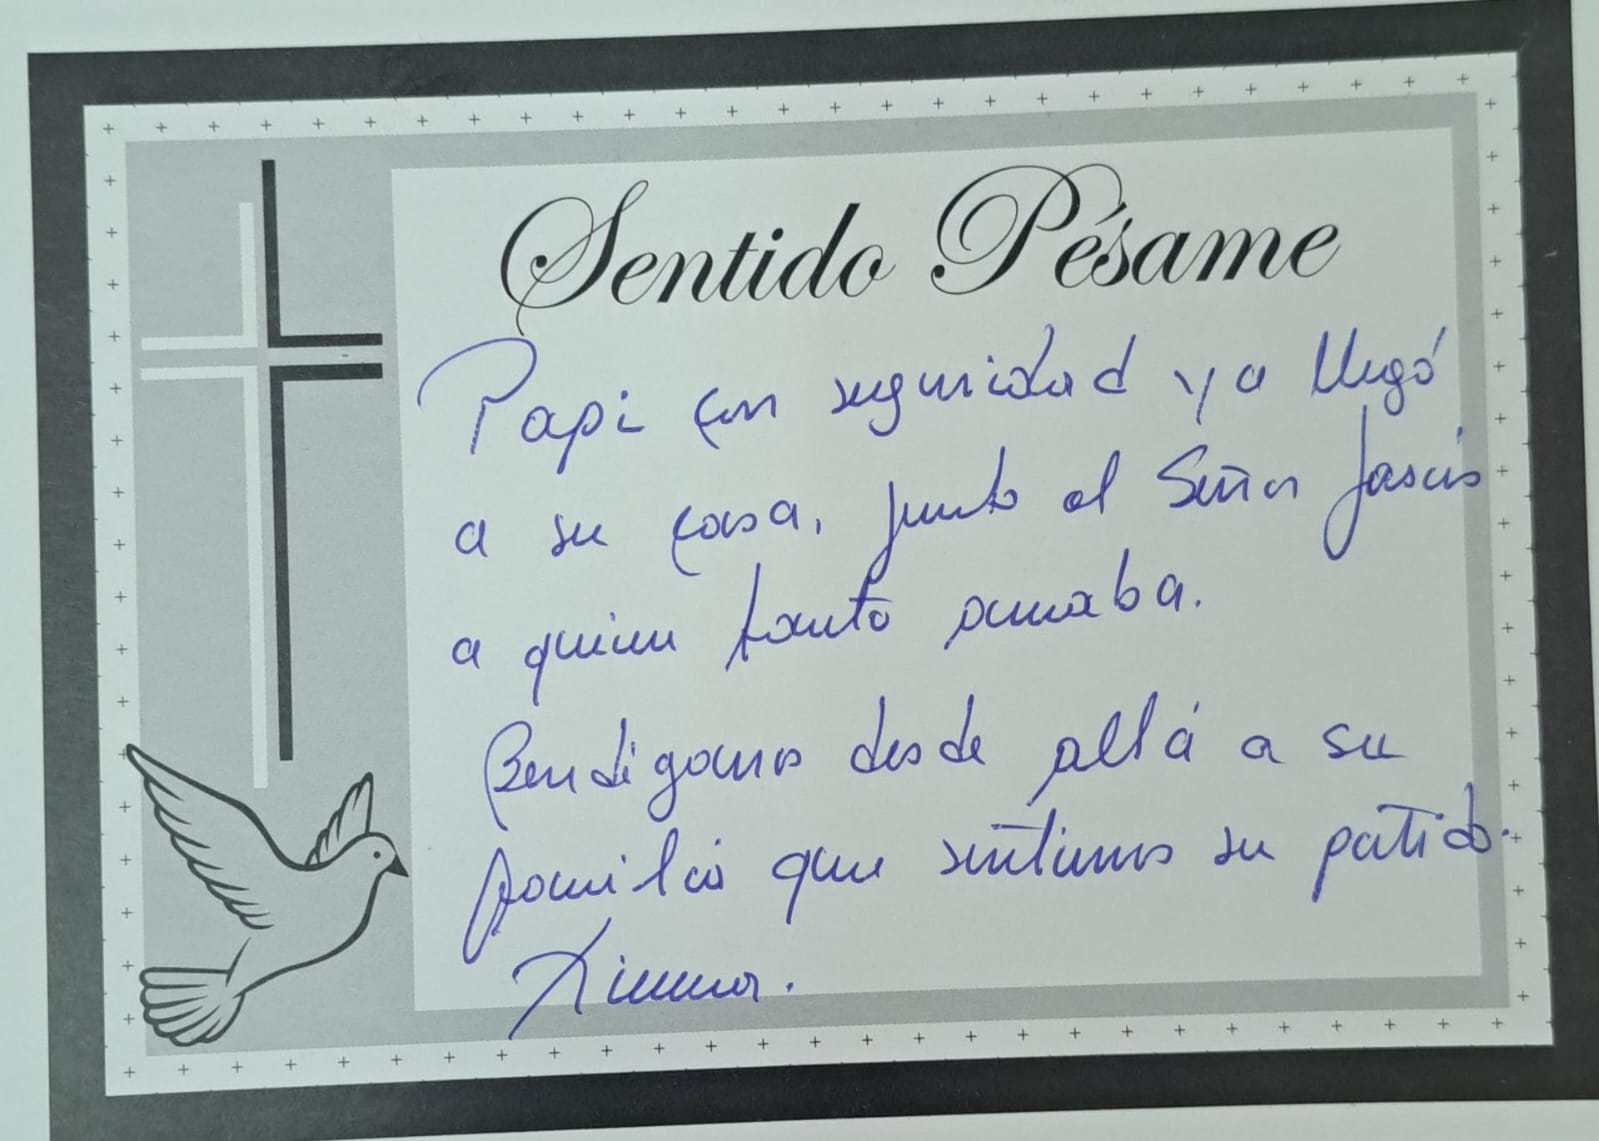 Sentido Pésame
Papi con seguridad ya llegó
a su casa, junto al Señor Jesús
a quien tanto amaba.
Bendíganos desde allá a su
familia que sentimos su partida.
Ximena.